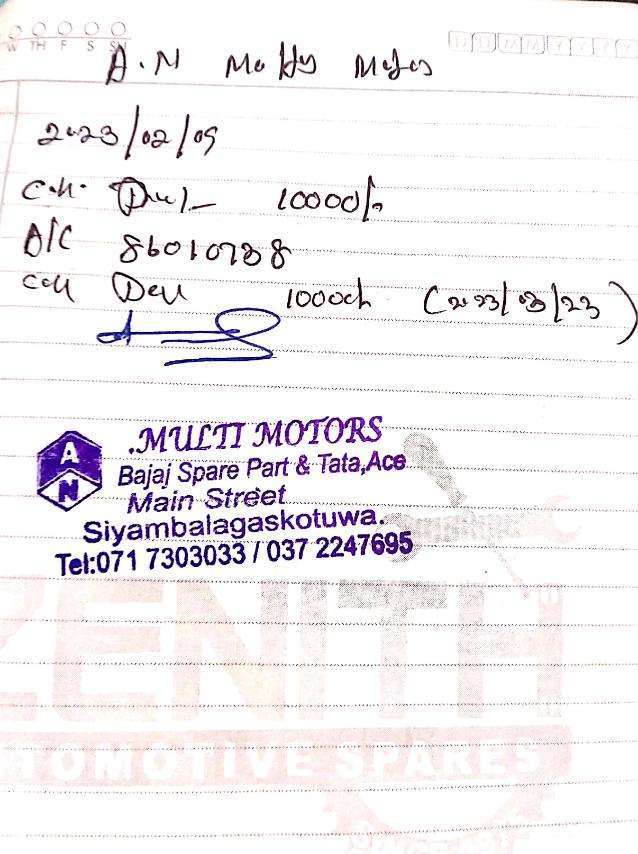 W TH F S S
D D M M Y Y Y Y
A.N Multy Motors
2023/02/09
10000/-
A/C 86010738
(2023/03/23)
A
N
.MULTI MOTORS
Bajaj Spare Part & Tata,Ace
Main Street
Siyambalagaskotuwa.
Tel:071 7303033 / 037 2247695
ZENITH
AUTOMOTIVE SPARES